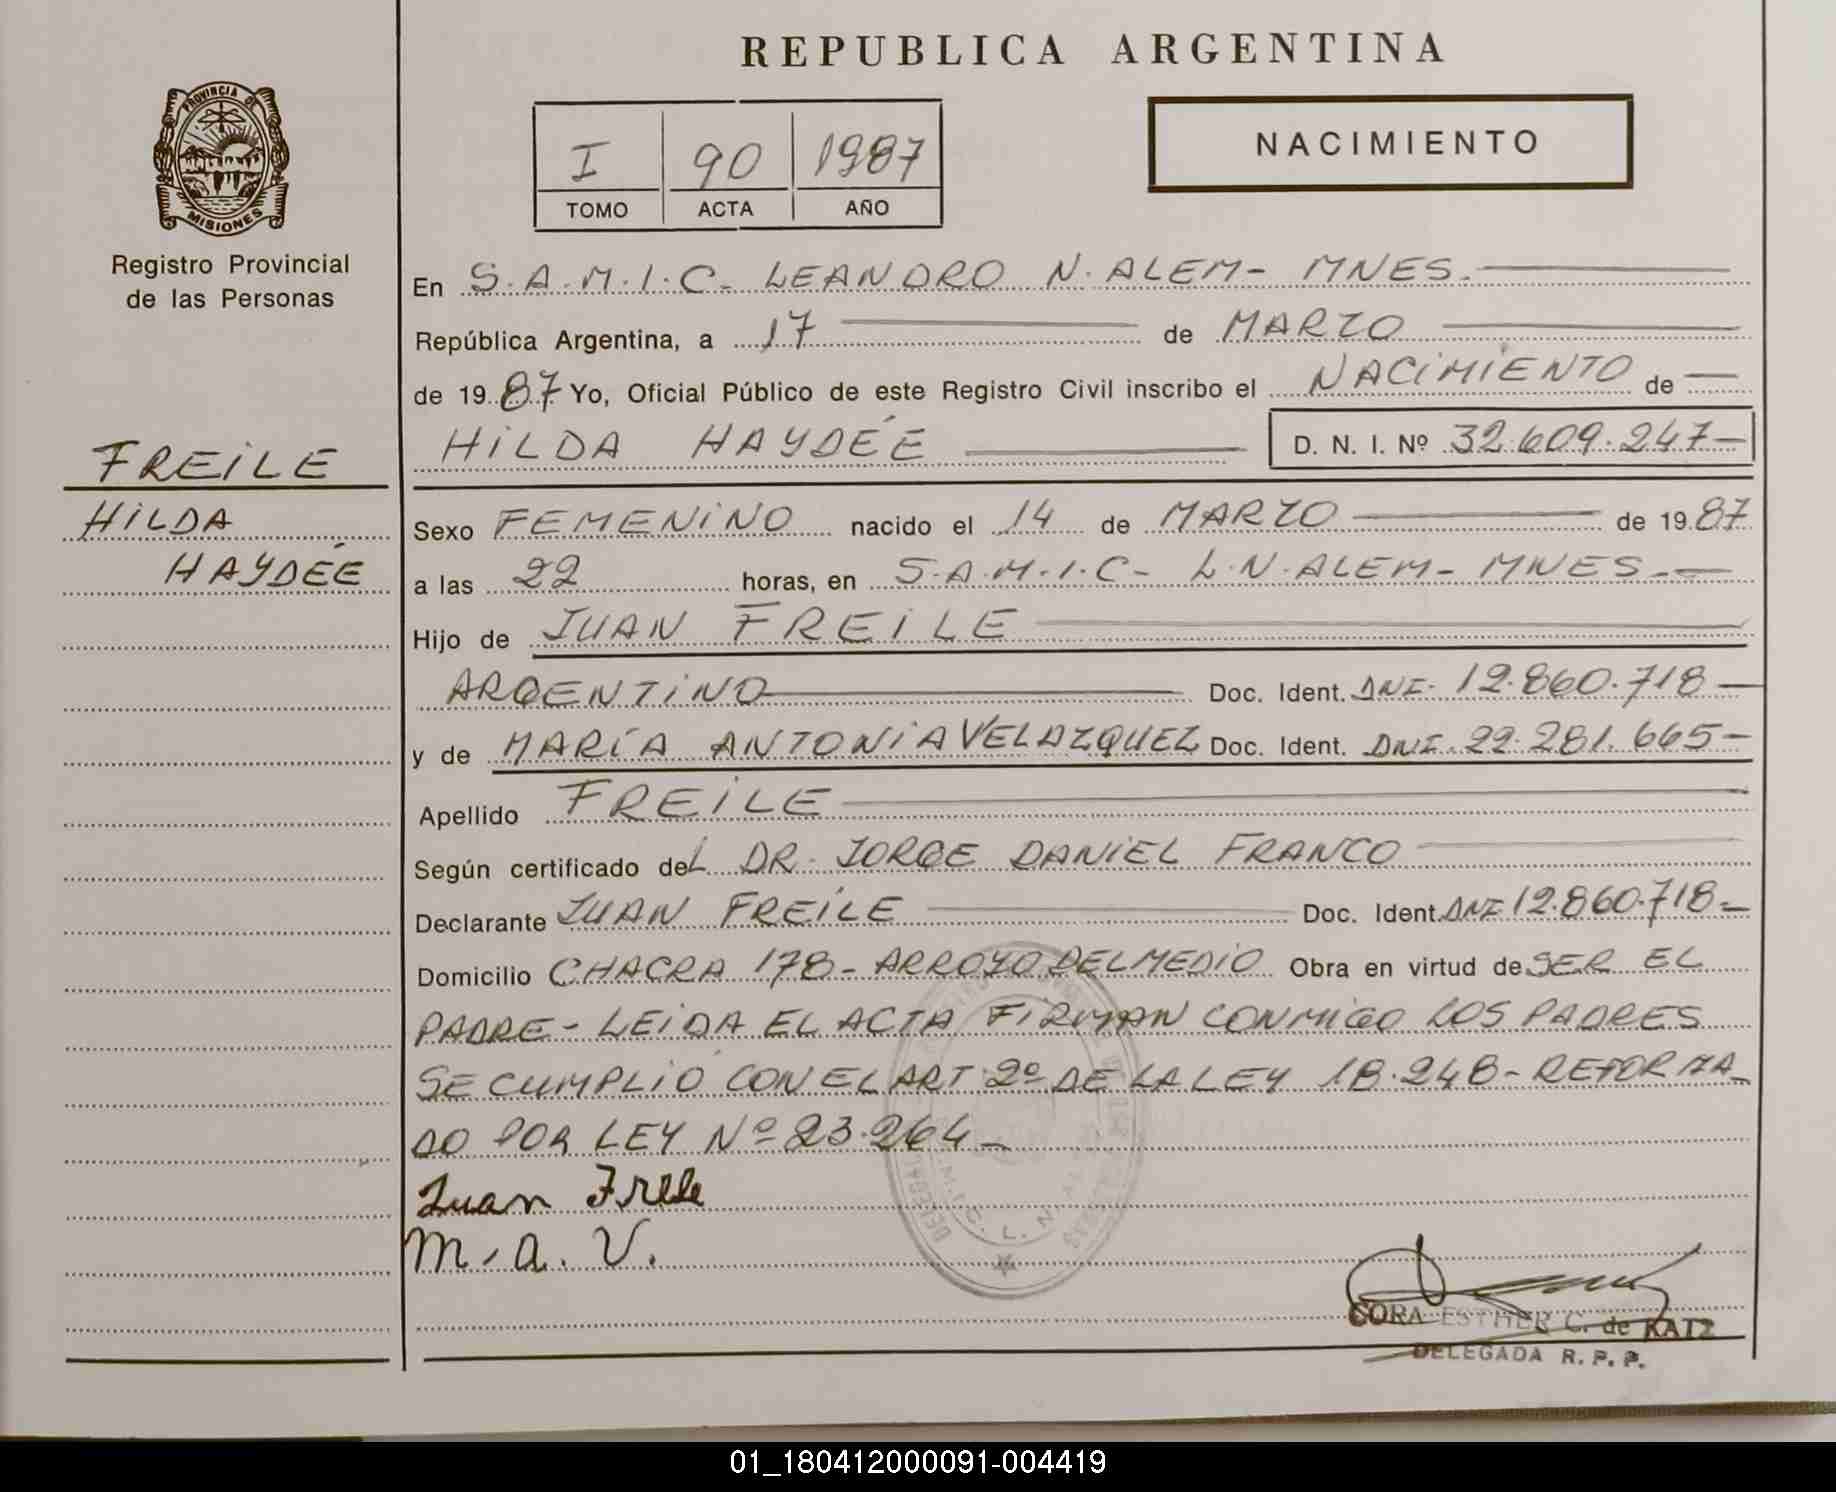 REPUBLICA ARGENTINA
PROVINCIA DE
MISIONES
Registro Provincial
de las Personas
I 90 1987
TOMO ACTA AÑO
NACIMIENTO
En S.A.M.I.C- LEANDRO N. ALEM- MNES.
República Argentina, a 17 de MARZO
de 1987 Yo, Oficial Público de este Registro Civil inscribo el NACIMIENTO de
HILDA HAYDÉE D. N. I. Nº 32.609.247-
FREILE
HILDA
HAYDÉE
Sexo FEMENINO nacido el 14 de MARZO de 1987
a las 22 horas, en S.A.M.I.C- L.N.ALEM- MNES-
Hijo de JUAN FREILE
ARGENTINO Doc. Ident. DNI- 12.860.718-
y de MARÍA ANTONIA VELAZQUEZ Doc. Ident. DNI. 22.281.665-
Apellido FREILE
Según certificado deL DR. JORGE DANIEL FRANCO
Declarante JUAN FREILE Doc. Ident. DNI 12.860.718-
Domicilio CHACRA 178- ARROYO DEL MEDIO Obra en virtud de SER EL
PADRE- LEIDA EL ACTA FIRMAN CONMIGO LOS PADRES
SE CUMPLIÓ CON EL ART. 2º DE LA LEY 18.248- REFORMA-
DO POR LEY Nº 23.264-
Juan Freile
M. A. V.
CORA ESTHER C. de KATZ
DELEGADA R. P. P.
01_180412000091-004419